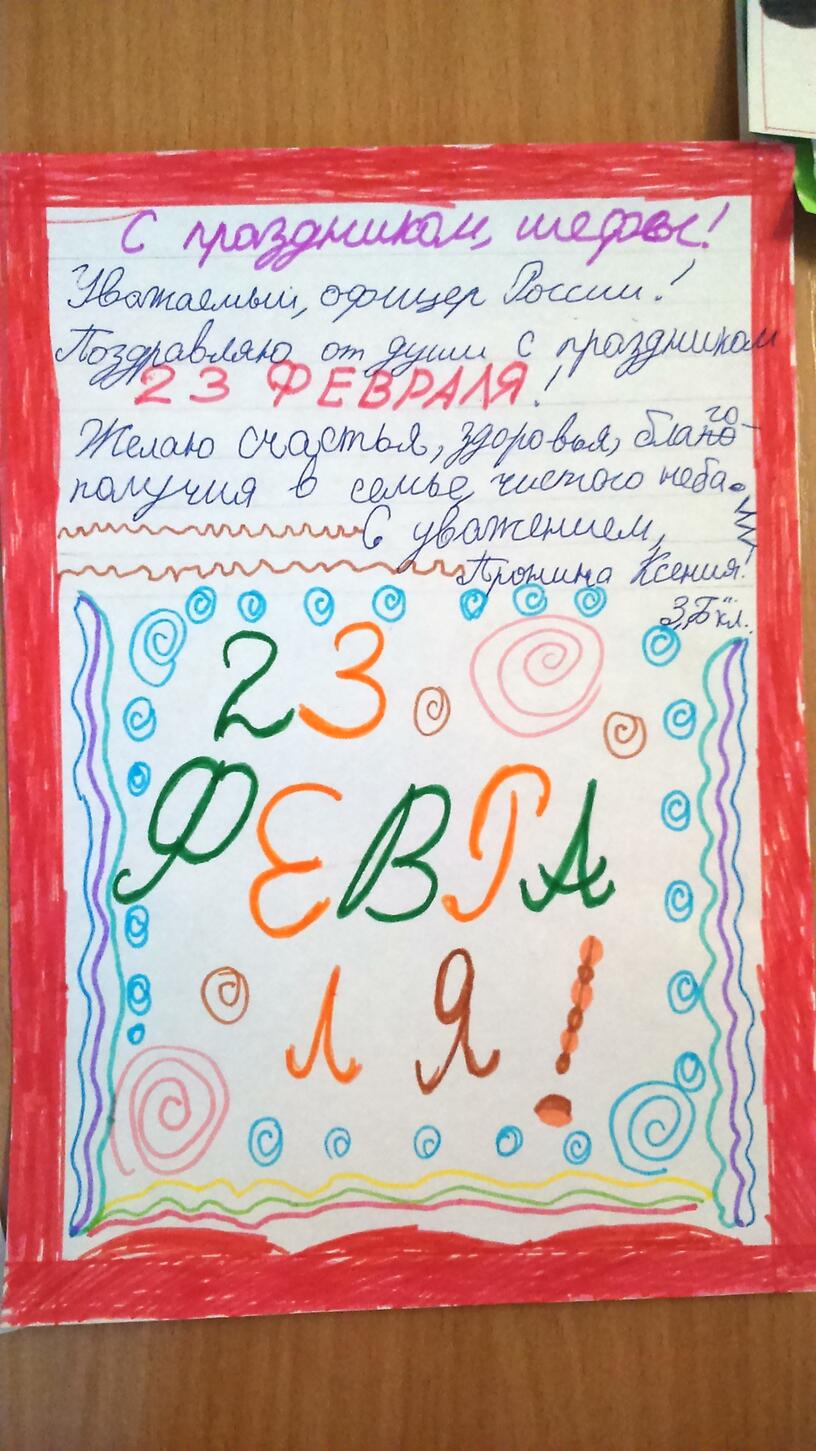 С праздником, шефы!
Уважаемый, офицер России!
Поздравляю от души с праздником
23 ФЕВРАЛЯ!
Желаю счастья, здоровья, благо-
получия в семье, чистого неба.
С уважением,
Пронина Ксения!
3 „Б" кл.
23
ФЕВРА
ЛЯ!